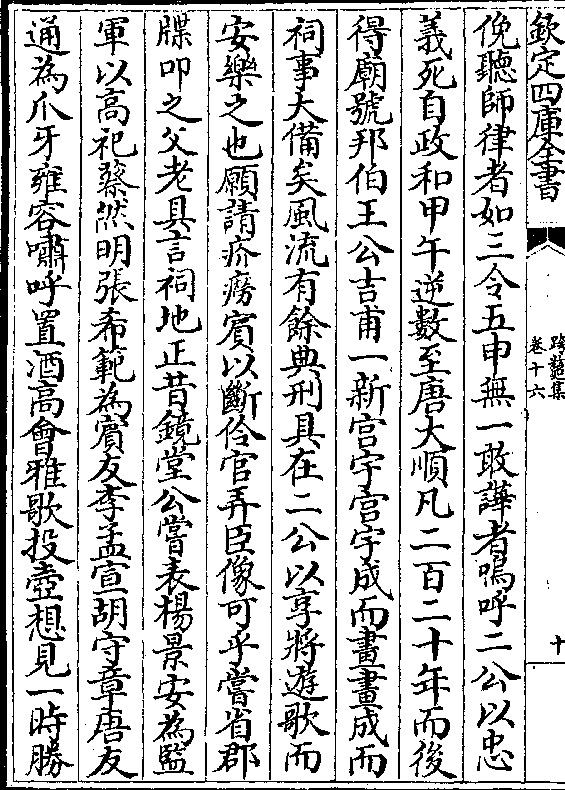 欽定四庫全書
跨鼇集
卷十六
十
俛聽師律者如三令五申無一敢譁者嗚呼二公以忠
義死自政和甲午逆數至唐大順凡二百二十年而後
得廟號邦伯王公吉甫一新宫宇宫宇成而畫畫成而
祠事大備矣風流有餘典刑具在二公以享將遊歌而
安樂之也願請疥癆賔以斷伶官弄臣像可乎嘗省郡
牒叩之父老具言祠地正昔鏡堂公嘗表楊景安為監
軍以高祀蔡然明張希範為賔友李孟宣胡守章唐友
通為爪牙雍容嘯呼置酒高會雅歌投壺想見一時勝